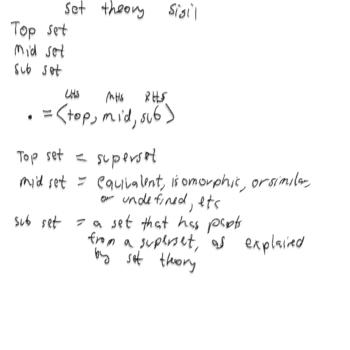 set theory sigil
Top set
mid set
sub set
LHS MHS RHS
• = <top, mid, sub>
Top set = superset
mid set = equivalent, isomorphic, or similar,
or undefined, etc
sub set = a set that has parts
from a superset, as explained
by set theory